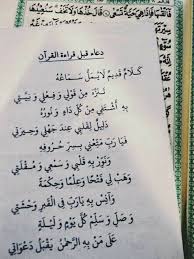 فَأَلْقَىٰهَا فَإِذَا هِيَ حَيَّةٌ تَسْعَىٰ قَالَ خُذْهَا وَلَا تَخَفْ سَنُعِيدُهَا
دعاء قبل قراءة القرآن
كَلَامٌ قَدِيمٌ لَا يُمَلُّ سَمَاعُهُ
تَنَزَّهَ مِنْ قَوْلِي وَفِعْلِي وَنِيَّتِي
بِهِ أَشْتَفِي مِنْ كُلِّ دَاءٍ وَنُورُهُ
دَلِيلٌ لِقَلْبِي عِنْدَ جَهْلِي وَحِيرَتِي
فَيَا رَبِّ مَتِّعْنِي بِسِرِّ حُرُوفِهِ
وَنَوِّرْ بِهِ قَلْبِي وَسَمْعِي وَمُقْلَتِي
وَهَبْ لِي فَتْحًا وَعِلْمًا وَحِكْمَةً
وَآنِسْ بِهِ يَا رَبِّ فِي الْقَبْرِ وَحْشَتِي
وَصَلِّ وَسَلِّمْ كُلَّ يَوْمٍ وَلَيْلَةٍ
عَلَى مَنْ بِهِ الرَّحْمَنُ يَقْبَلُ دَعْوَاتِي